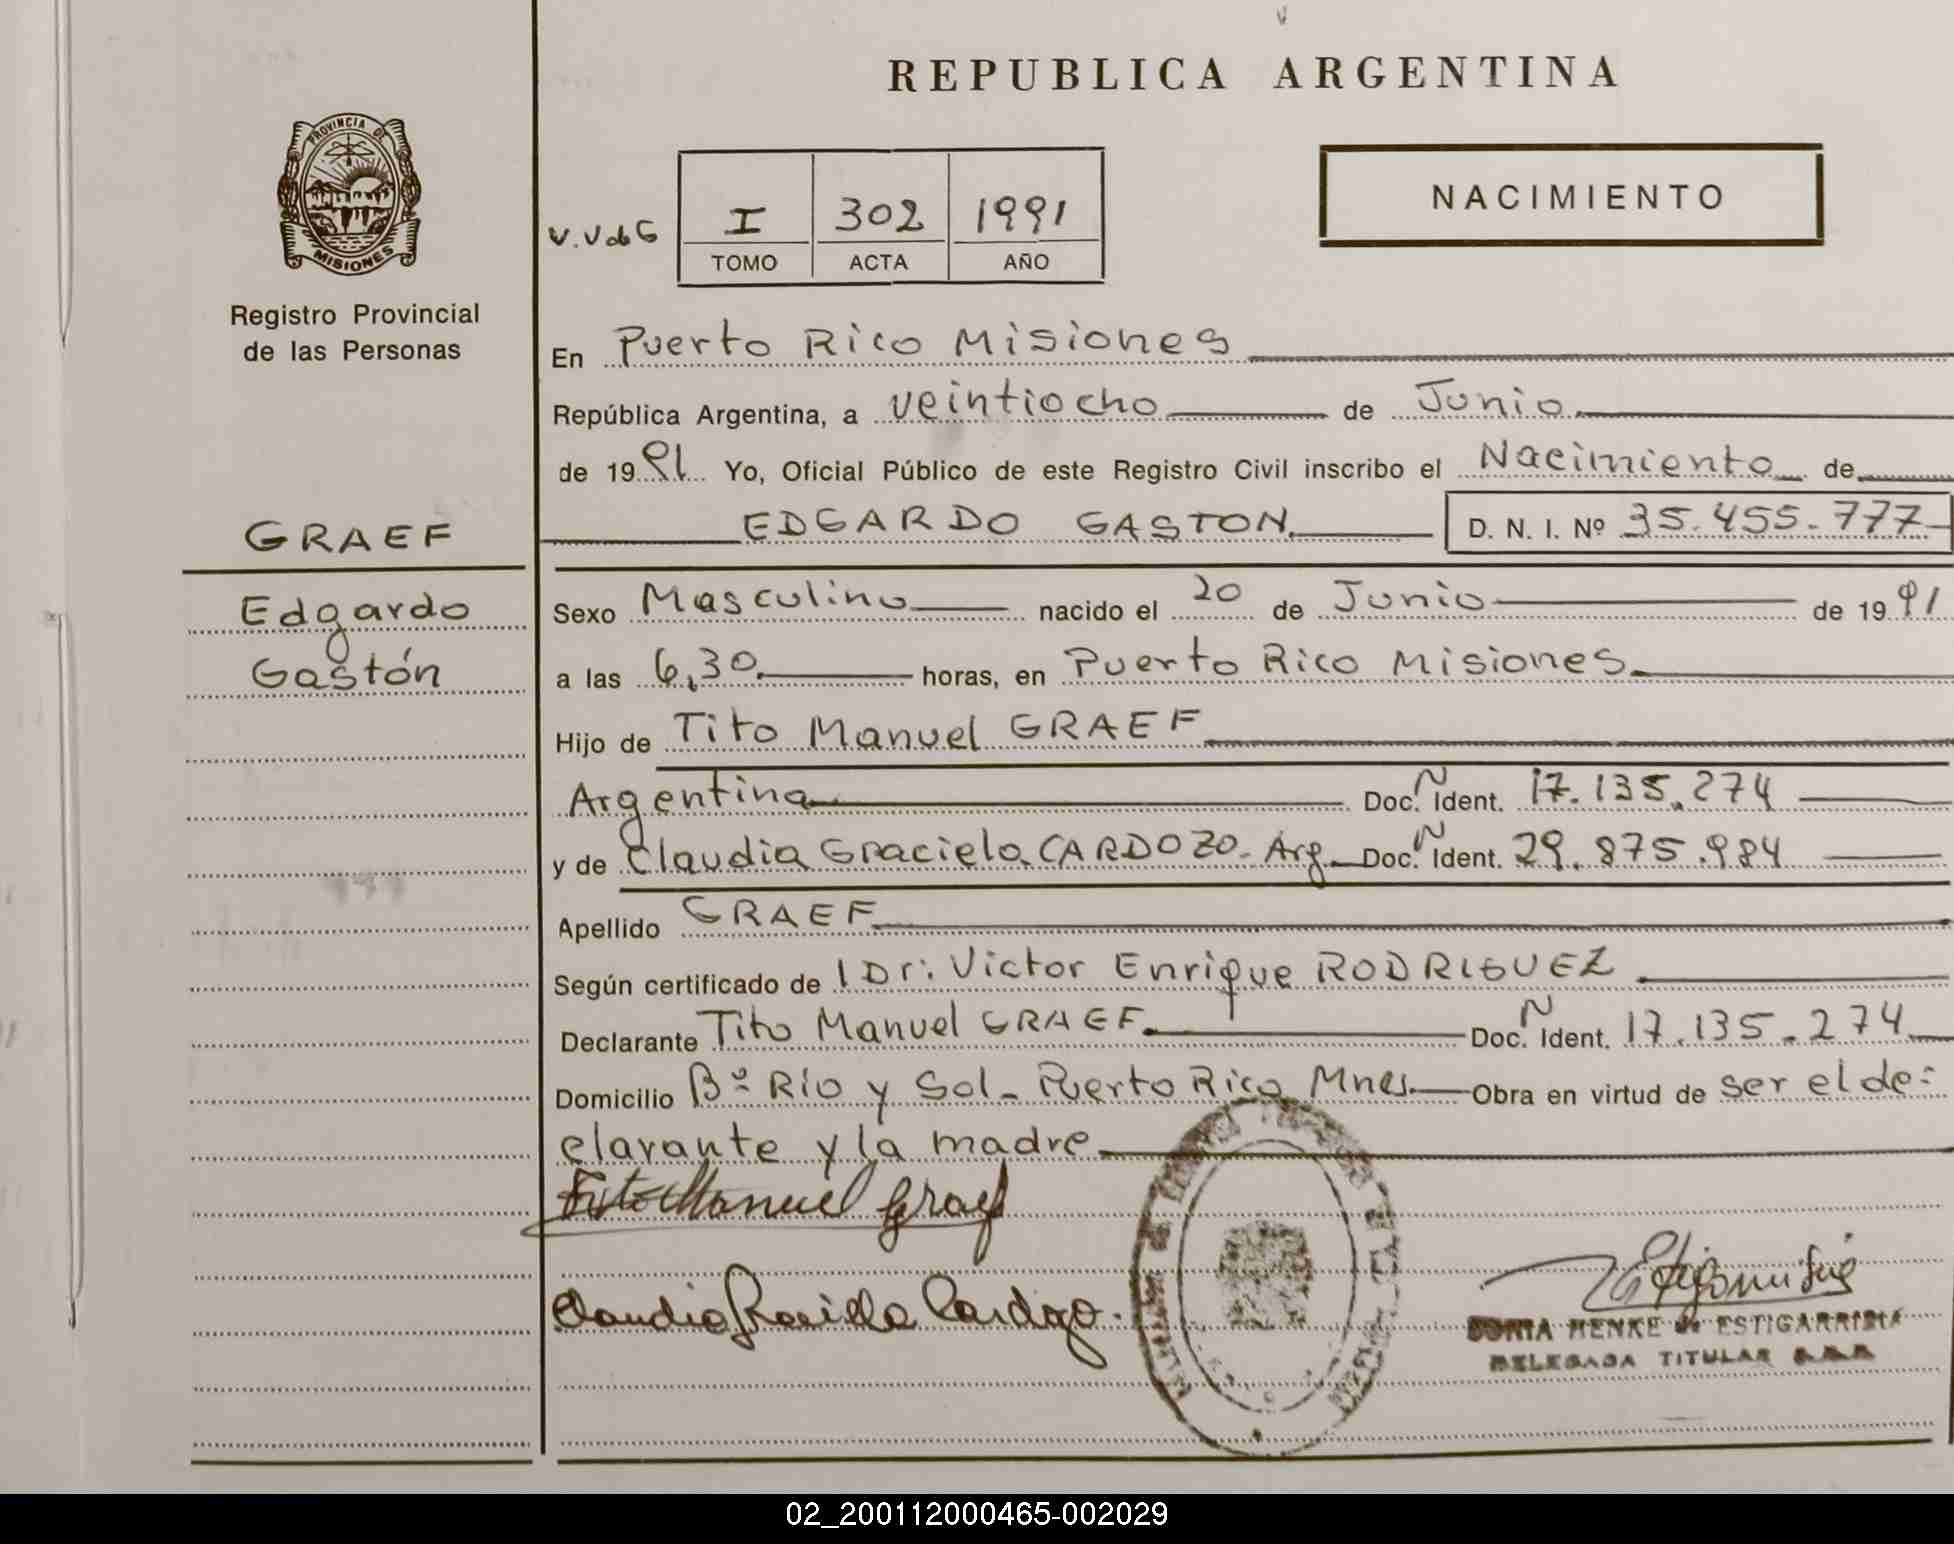 REPUBLICA ARGENTINA
PROVINCIA DE
MISIONES
Registro Provincial
de las Personas
V.V de G
I 302 1991
TOMO ACTA AÑO
NACIMIENTO
En Puerto Rico Misiones
República Argentina, a veintiocho de Junio
de 19 91 Yo, Oficial Público de este Registro Civil inscribo el Nacimiento de
GRAEF
EDGARDO GASTON D. N. I. Nº 35.455.777
Edgardo
Gastón
Sexo Masculino nacido el 20 de Junio de 19 91
a las 6,30 horas, en Puerto Rico Misiones
Hijo de Tito Manuel GRAEF
Argentina Doc. N Ident. 17.135.274
y de Claudia Graciela CARDOZO. Arg. Doc. N Ident. 29.875.984
Apellido GRAEF
Según certificado de l Dr: Victor Enrique RODRIGUEZ
Declarante Tito Manuel GRAEF. Doc. N Ident. 17.135.274
Domicilio Bº Río y Sol - Puerto Rico Mnes. Obra en virtud de ser el de=
clarante y la madre
Tito Manuel Graef
Claudia Graciela Cardozo.
SONIA HENKE de ESTIGARRIBIA
DELEGADA TITULAR
02_200112000465-002029